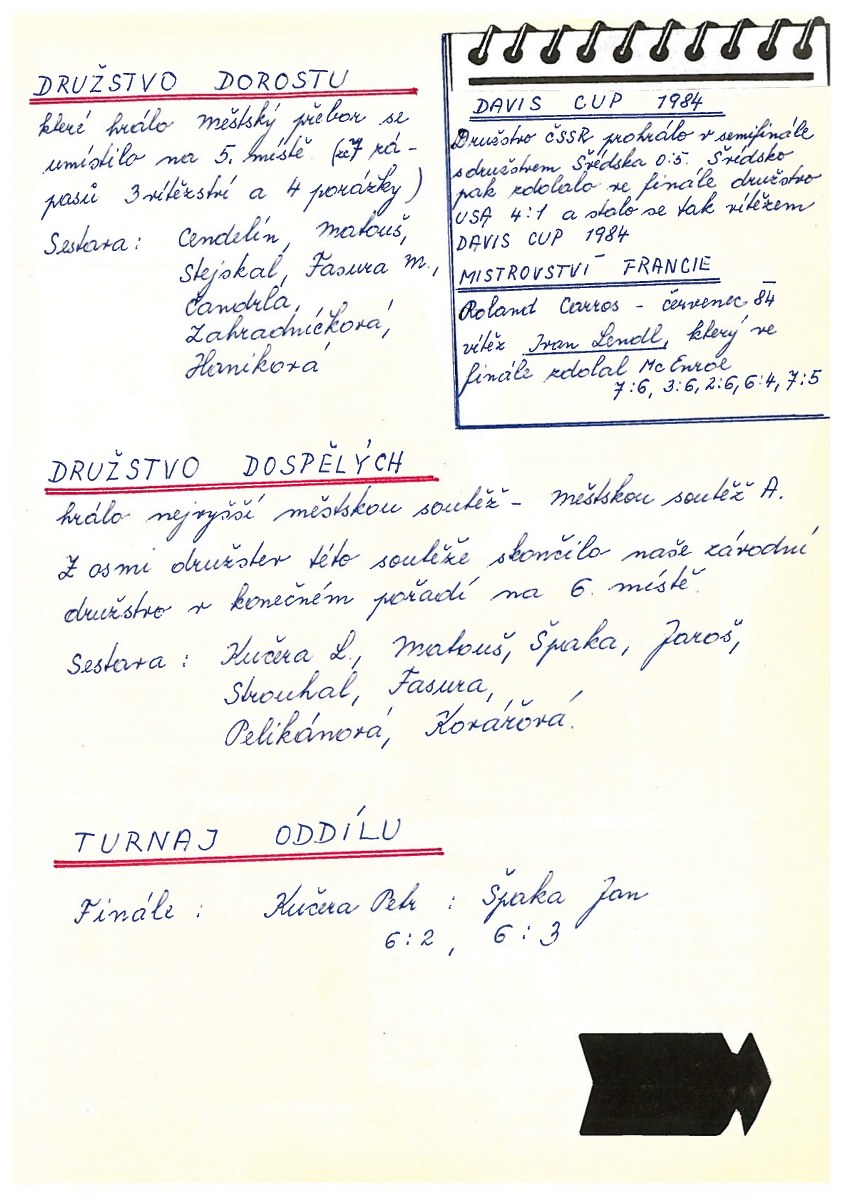 DRUŽSTVO DOROSTU
které hrálo městský přebor se
umístilo na 5. místě (ze 7 zá-
pasů 3 vítězství a 4 porážky)
Sestava: Cendelín, Matouš,
Stejskal, Fasura M.,
Čandrla,
Zahradníčková,
Haniková
DAVIS CUP 1984
Družstvo ČSSR prohrálo v semifinále
s družstvem Švédska 0:5. Švédsko
pak zdolalo ve finále družstvo
USA 4:1 a stalo se tak vítězem
DAVIS CUP 1984
MISTROVSTVÍ FRANCIE
Roland Carros - červenec 84
vítěz Ivan Lendl, který ve
finále zdolal Mc Enroe
7:6, 3:6, 2:6, 6:4, 7:5
DRUŽSTVO DOSPĚLÝCH
hrálo nejvyšší městskou soutěž - městskou soutěž A.
Z osmi družstev této soutěže skončilo naše závodní
družstvo v konečném pořadí na 6. místě.
Sestava: Kučera L., Matouš, Špaka, Jaroš,
Strouhal, Fasura,
Pelikánová, Kovářová.
TURNAJ ODDÍLU
Finále: Kučera Petr : Špaka Jan
6:2, 6:3